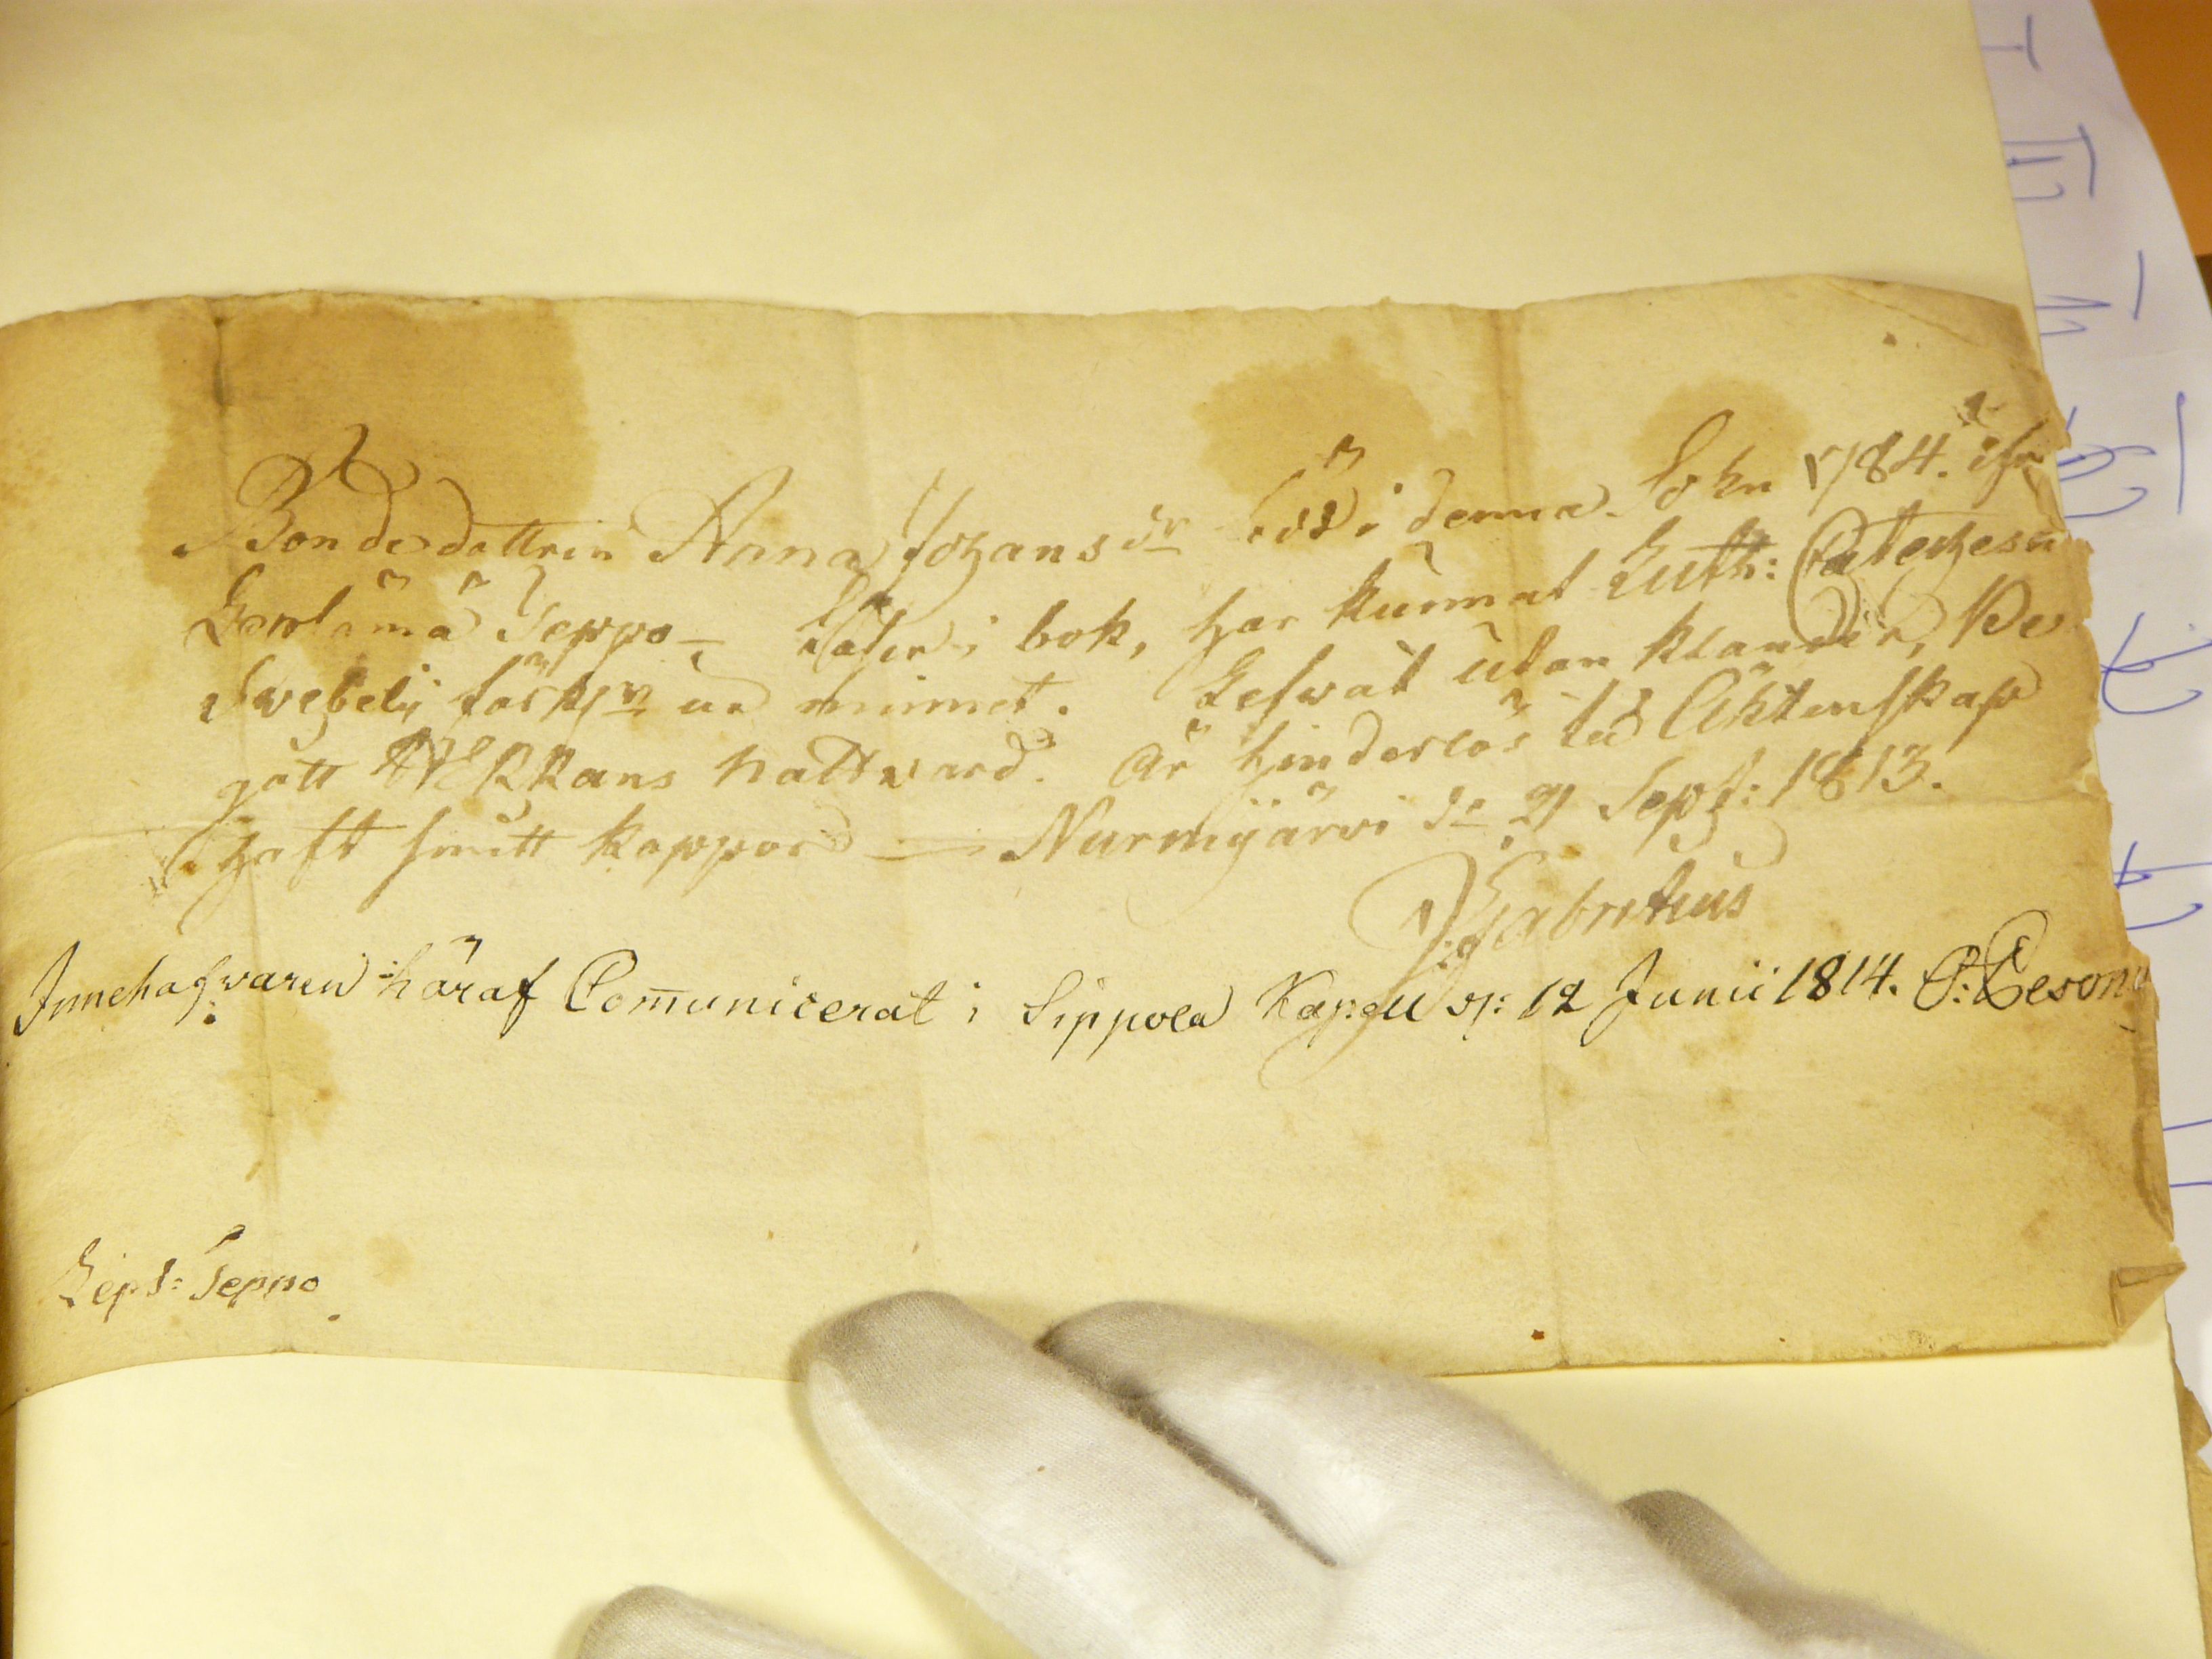 Bondedottren Anna Johans dr född i denna Sokn 1784. ifr
Lepsämä Seppo – Läser i bok, har kunnat Luth: Cateches
Swebelii förkl:n ur minnet. Lefwat utan klander, Be
gått HERRans nattward. Är hinderlös till Äktenskap
haft smitt koppor – Nurmijärwi d. 21 Sept: 1813.
Innehafwaren häraf Communicerat i Sippola Kapell d: 12 Junii 1814.
Leps: Seppo